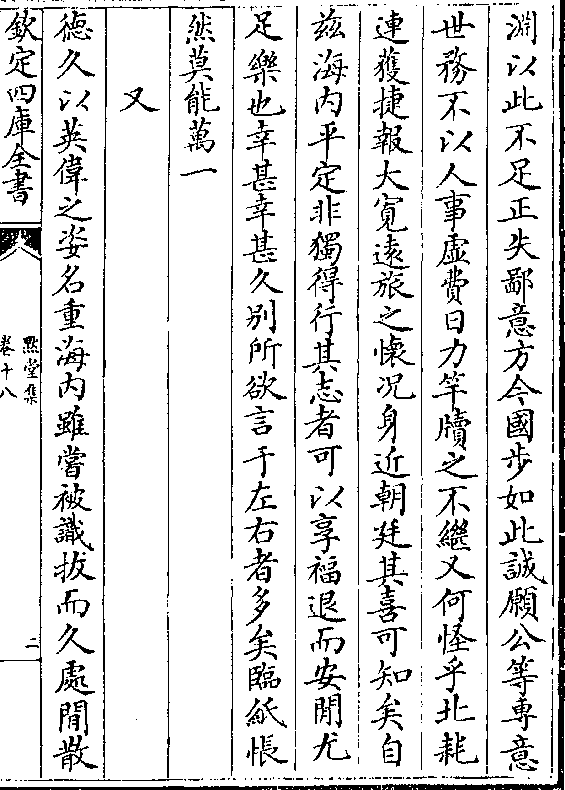 淵以此不足正失鄙意方今國步如此誠願公等専意
世務不以人事虛費日力竿牘之不繼又何怪乎北耗
連獲捷報大寛逺旅之懐况身近朝廷其喜可知矣自
兹海内平定非獨得行其志者可以享福退而安閒尤
足樂也幸甚幸甚久别所欲言于左右者多矣臨紙悵
然莫能萬一
又
徳久以英偉之姿名重海内雖嘗被識拔而久處閒散
欽定四庫全書
默堂集
卷十八
二